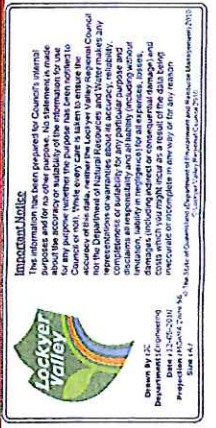 Lockyer
Valley
Important Notice
The information has been prepared for Council's internal
purposes and for no other purpose. No statement is made
about the accuracy or suitability of the information for use
for any purpose (whether the purpose has been notified to
Council or not). While every care is taken to ensure the
accuracy of this data neither the Lockyer Valley Regional Council
nor the Department of Natural Resources and Water makes any
representations or warranties about its accuracy, reliability,
completeness or suitability for any particular purpose and
disclaims all responsibility and all liability (including without
limitation, liability in negligence) for all expenses, losses,
damages (including indirect or consequential damage) and
costs which you might incur as a result of the data being
inaccurate or incomplete in any way or for any reason
© The State of Queensland (Department of Environment and Resource Management) 2010
© Lockyer Valley Regional Council 2010
Drawn By:
Department: Engineering
Date:
Projection:
Size: A3